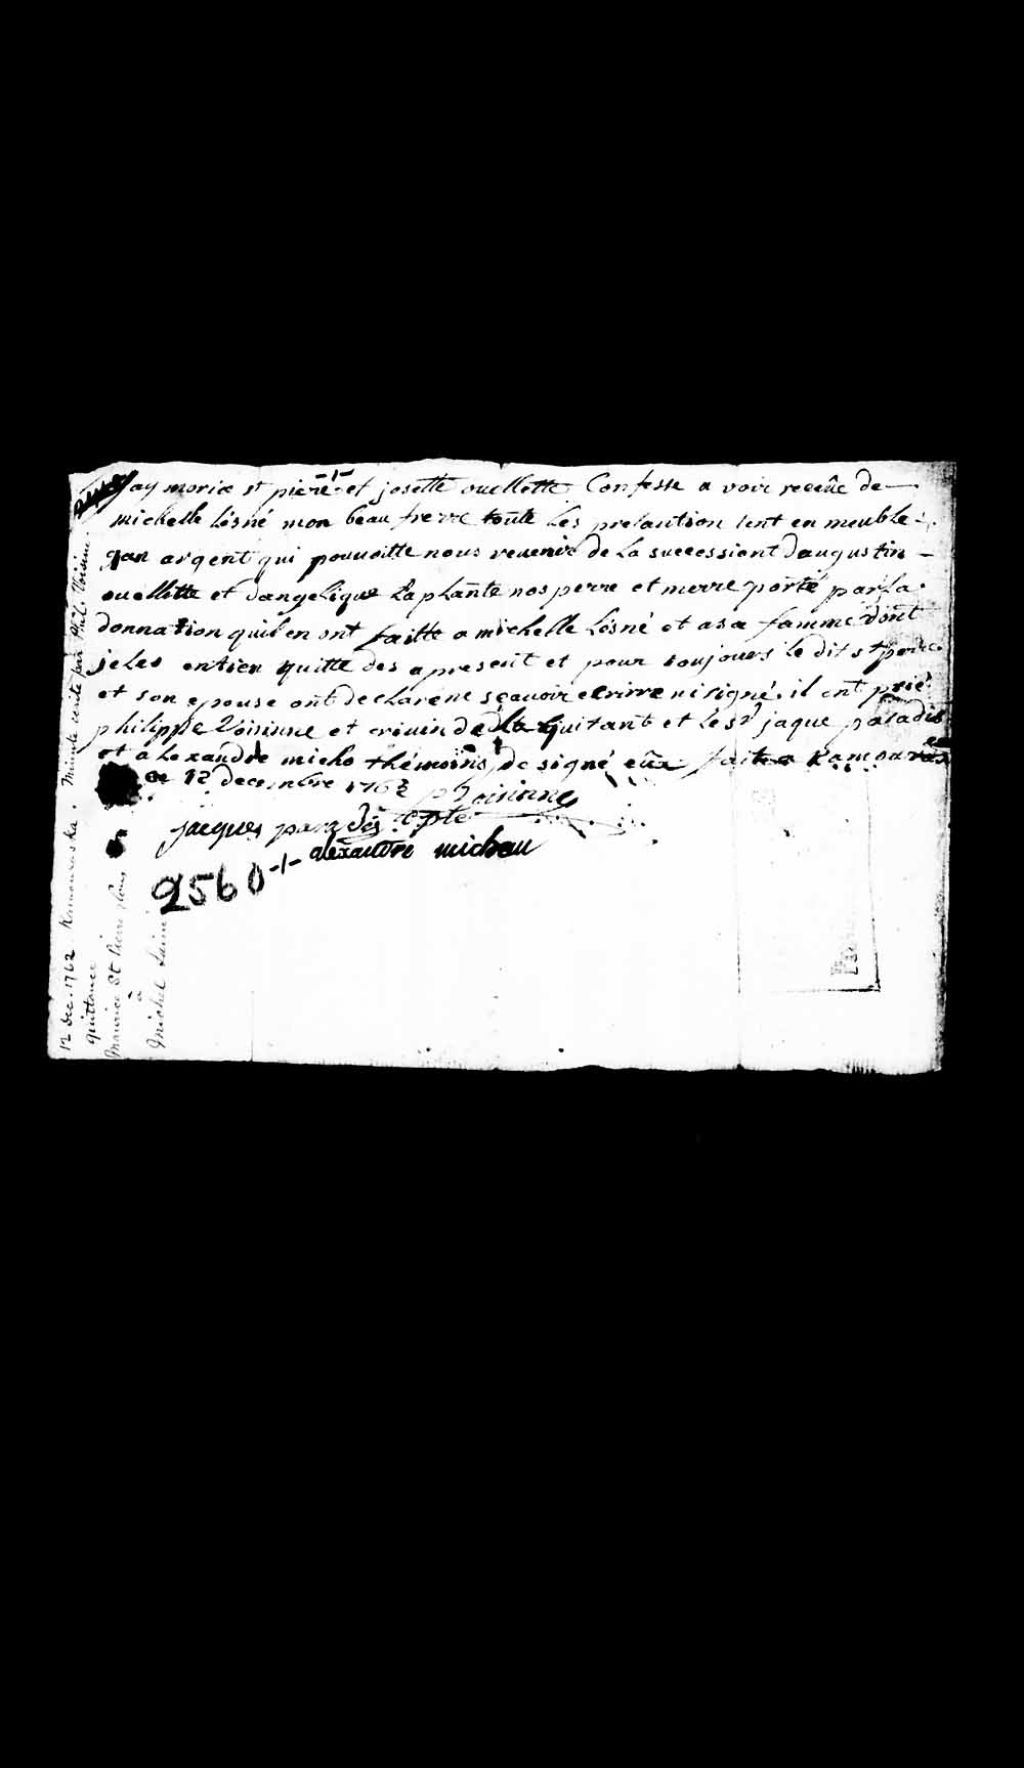 jay morice st pierre et josette ouellette Confesse a voir receüe de
michelle lésné mon beau frerre toute les pretantion tent en meuble
quan argent qui pouvoitte nous revenir de la successient daugustin
ouellette et dangelique Laplante nos perre et merre porté par la
donnation quil en ont faitte a michelle lésné et asa famme dont
je les entien quitte des apresent et pour toujours le dit st pierre
et son epouse ont declare ne sçavoir ecrirre ni signé. il ont prié
philippe Voisinne et crivin de la quitant et le sr jaque paradis
et alexandre micho thémoins de signé eüx fait a Kamouras
ce 12 decembre 1762 ph Voisinne
jacques paradis Cpte
alexandre michau
2560
12 dec. 1762 Kamouraska. Minute écrite par Phil. Voisine.
quittance
Maurice St Pierre
à
Michel Lainé